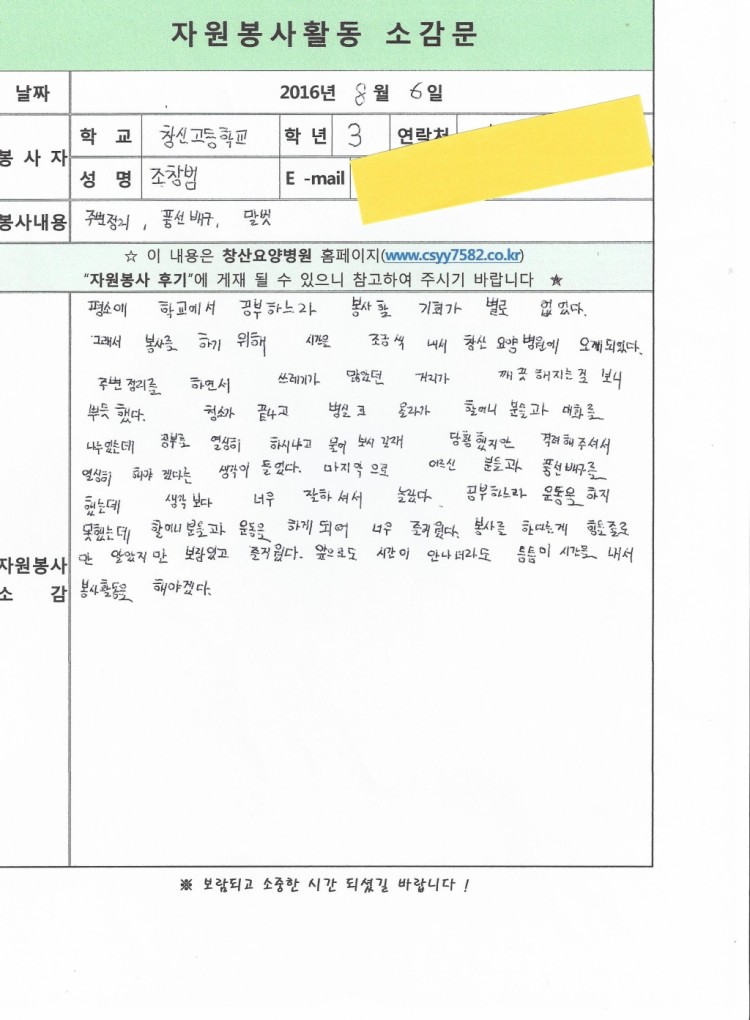 자원봉사활동 소감문
날짜 2016년 8월 6일
봉사자 학교 창신고등학교 학년 3 연락처
성명 조창범 E-mail
봉사내용 주변정리, 풍선배구, 말벗
☆ 이 내용은 창산요양병원 홈페이지(www.csyy7582.co.kr)
"자원봉사 후기"에 게재 될 수 있으니 참고하여 주시기 바랍니다 ★
평소에 학교에서 공부하느라 봉사할 기회가 별로 없었다.
그래서 봉사를 하기 위해 시간을 조금씩 내서 창신 요양병원에 오게되었다.
주변정리를 하면서 쓰레기가 많았던 거리가 깨끗해지는걸 보니
뿌듯했다. 청소가 끝나고 병실로 올라가 할머니 분들과 대화를
나누었는데 공부를 열심히 하시냐고 물어 보시길래 당황했지만 격려해주셔서
열심히 해야 겠다는 생각이 들었다. 마지막으로 어르신 분들과 풍선배구를
했는데 생각보다 너무 잘하셔서 놀랐다. 공부하느라 운동을 하지
못했는데 할머니분들과 운동을 하게 되어 너무 즐거웠다. 봉사를 한다는게 힘든줄로
만 알았지만 보람있고 즐거웠다. 앞으로도 시간이 안나더라도 틈틈이 시간을 내서
봉사활동을 해야겠다.
자원봉사
소감
※ 보람되고 소중한 시간 되셨길 바랍니다 !